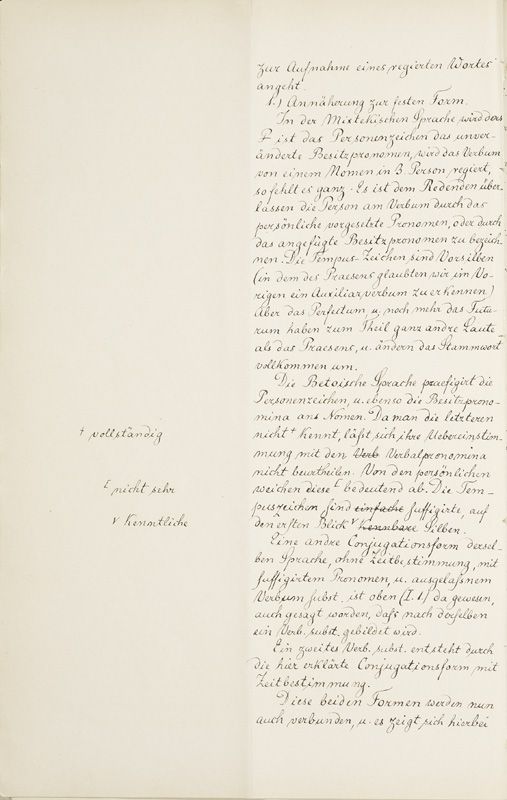 zur Aufnahme eines regierten Wortes
angeht.
1.) Annäherung zur festen Form.
In der Mixtekischen Sprache wird das
ist das Personenzeichen das unver-
änderte Besitzpronomen, wird das Verbum
von einem Nomen in 3. Person regiert,
so fehlt es ganz. Es ist dem Redenden über-
lassen die Person am Verbum durch das
persönliche vorgesetzte Pronomen, oder durch
das angefügte Besitzpronomen zu bezeich-
nen. Die Tempus-Zeichen sind Vorsilben
(in dem des Praesens glaubten wir im Vo-
rigen ein Auxiliarverbum zu erkennen)
Aber das Perfectum, u. noch mehr das Futu-
rum haben zum Theil ganz andre Laute
als das Praesens, u. ändern das Stammwort
vollkommen um.
Die Betoische Sprache praefigirt die
Personenzeichen, u. ebenso die Besitzprono-
mina ans Nomen. Da man die letzteren
+ vollständig
nicht + kennt, läßt sich ihre Uebereinstim-
mung mit den Verb Verbalpronomina
nicht beurtheilen. Von den persönlichen
⌊ nicht sehr
weichen diese ⌊ bedeutend ab. Die Tem-
puszeichen sind einfache suffigirte, auf
v Kenntliche
den ersten Blick v Kennbare Silben.
Eine andre Conjugationsform dersel-
ben Sprache, ohne Zeitbestimmung, mit
suffigirtem Pronomen, u. ausgelaßnem
Verbum subst. ist oben (I. 1.) da gewesen,
auch gesagt worden, daß nach derselben
ein Verb. subst. gebildet wird.
Ein zweites Verb. subst. entsteht durch
die hier erklärte Conjugationsform mit
Zeitbestimmung.
Diese beiden Formen werden nun
auch verbunden, u. es zeigt sich hierbei